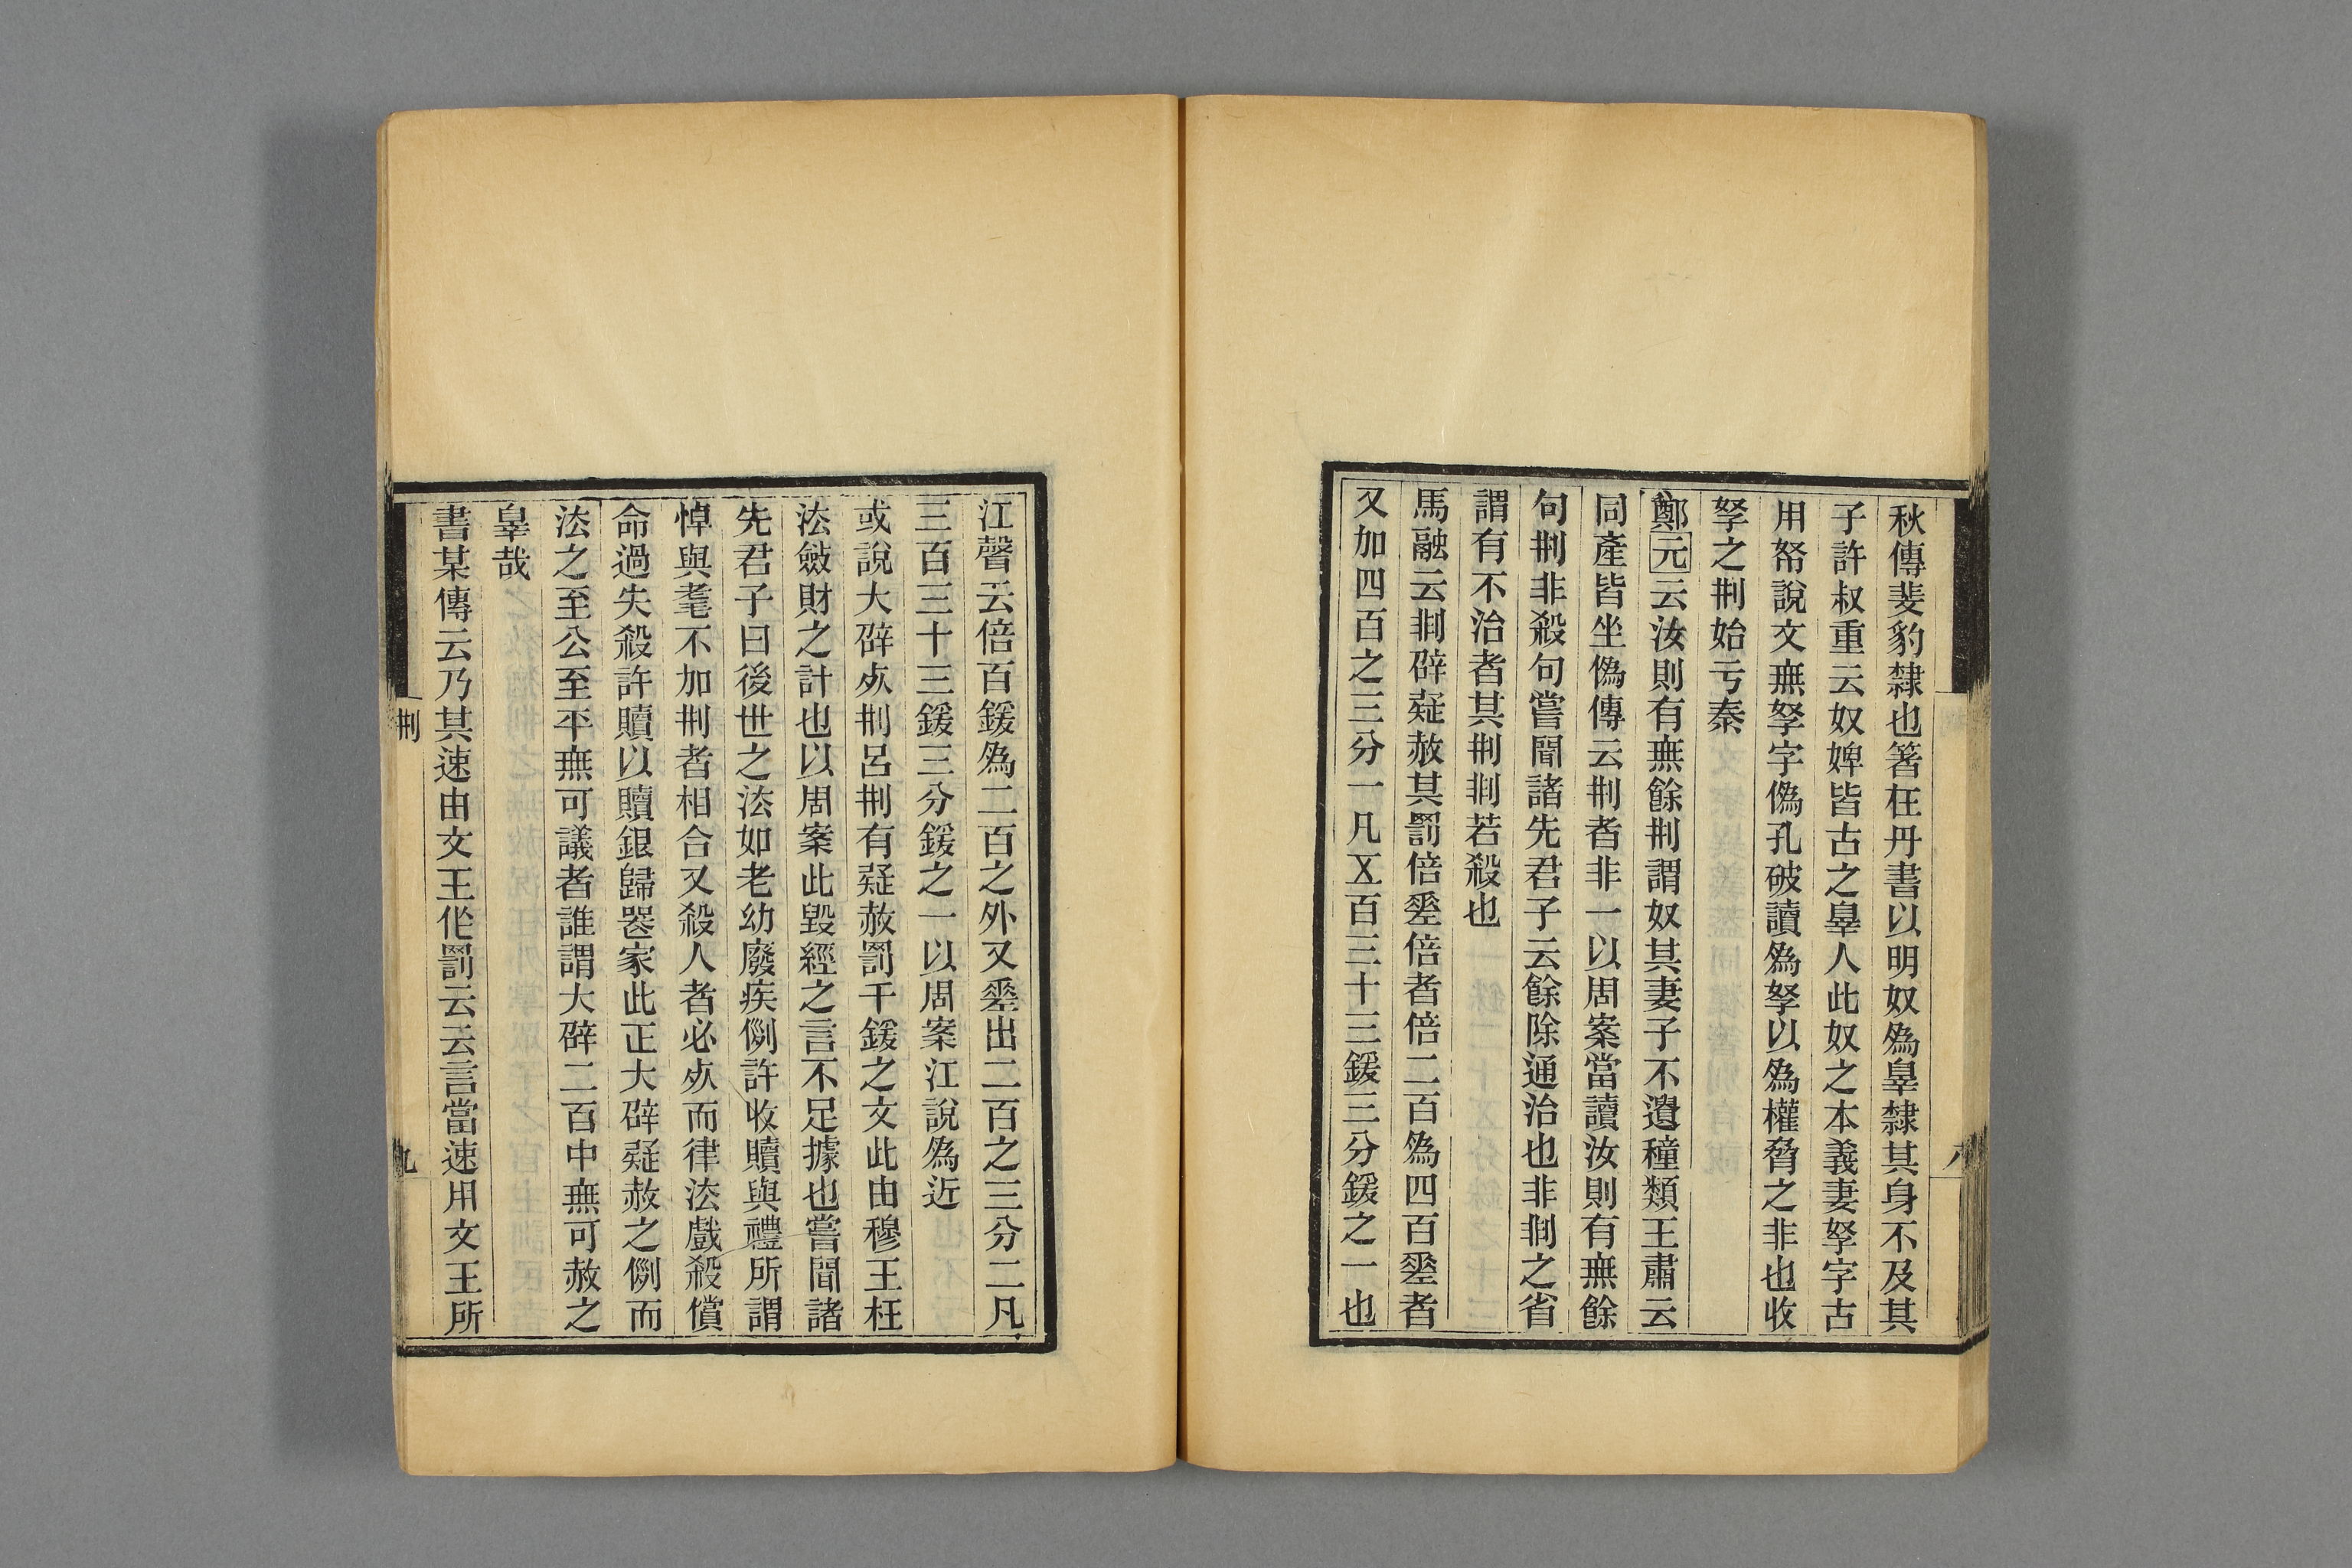 秋傳斐豹隸也箸在丹書以明奴爲辠隸其身不及其
子許叔重云奴婢皆古之辠人此奴之本義妻孥字古
用帑說文無孥字僞孔破讀爲孥以爲權脅之非也收
孥之㓝始亏秦
鄭元云汝則有無餘㓝謂奴其妻子不遺種類王肅云
同產皆坐僞傳云㓝者非一以周案當讀汝則有無餘
句㓝非殺句嘗聞諸先君子云餘除通治也非剕之省
謂有不治者其㓝剕若殺也
馬融云剕辟疑赦其罰倍𢀩倍者倍二百爲四百𢀩者
又加四百之三分一凡五百三十三鍰三分鍰之一也
江聲云倍百鍰爲二百之外又𢀩出二百之三分二凡
三百三十三鍰三分鍰之一以周案江說爲近
或說大辟𣦸㓝呂㓝有疑赦罰千鍰之文此由穆王枉
法斂財之計也以周案此毀經之言不足據也嘗聞諸
先君子曰後世之法如老幼廢疾例許收贖與禮所謂
悼與耄不加㓝者相合又殺人者必𣦸而律法戲殺償
命過失殺許贖以贖銀歸器家此正大辟疑赦之例而
法之至公至平無可議者誰謂大辟二百中無可赦之
辠哉
書某傳云乃其速由文王作罰云云言當速用文王所
㓝
九